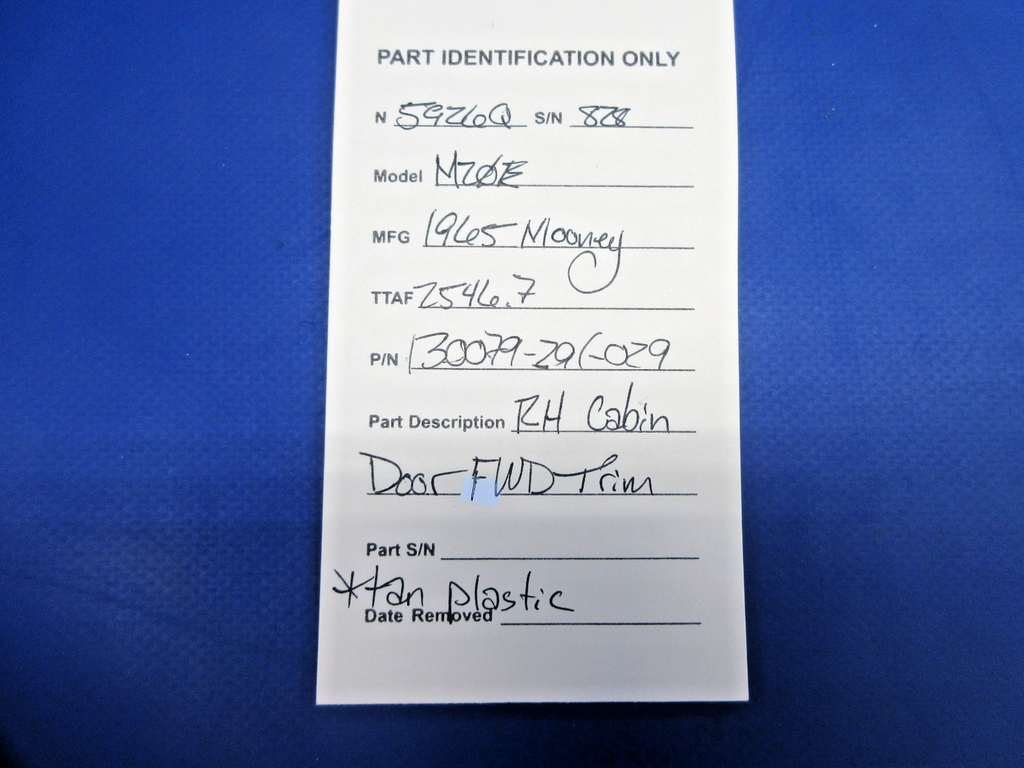 PART IDENTIFICATION ONLY
N 5926Q S/N 828
Model M20E
MFG 1965 Mooney
TTAF 2546.7
P/N 130079-291-029
Part Description RH Cabin
Door FWD Trim
Part S/N
*tan plastic
Date Removed